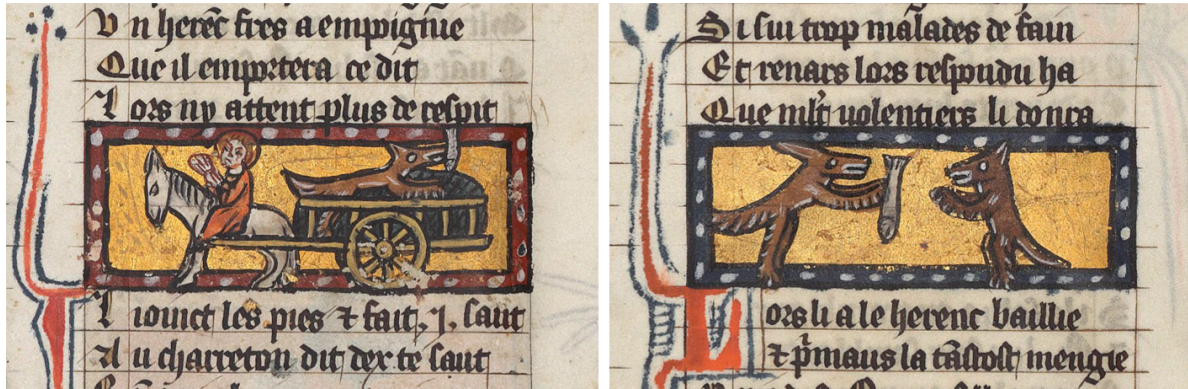 Un herēc fres a empoigne
Que il emportera ce dit
Lors ny attent plus de respit
Lı ioinct les pies ⁊ fait .j. saut
Au charreton dit dex te saut
Si sui trop malades de fain
Et renars lors respondu ha
Que ml't uolentiers li donra
Lors li a le herenc baillie
⁊ p̄maus la tātost mengie